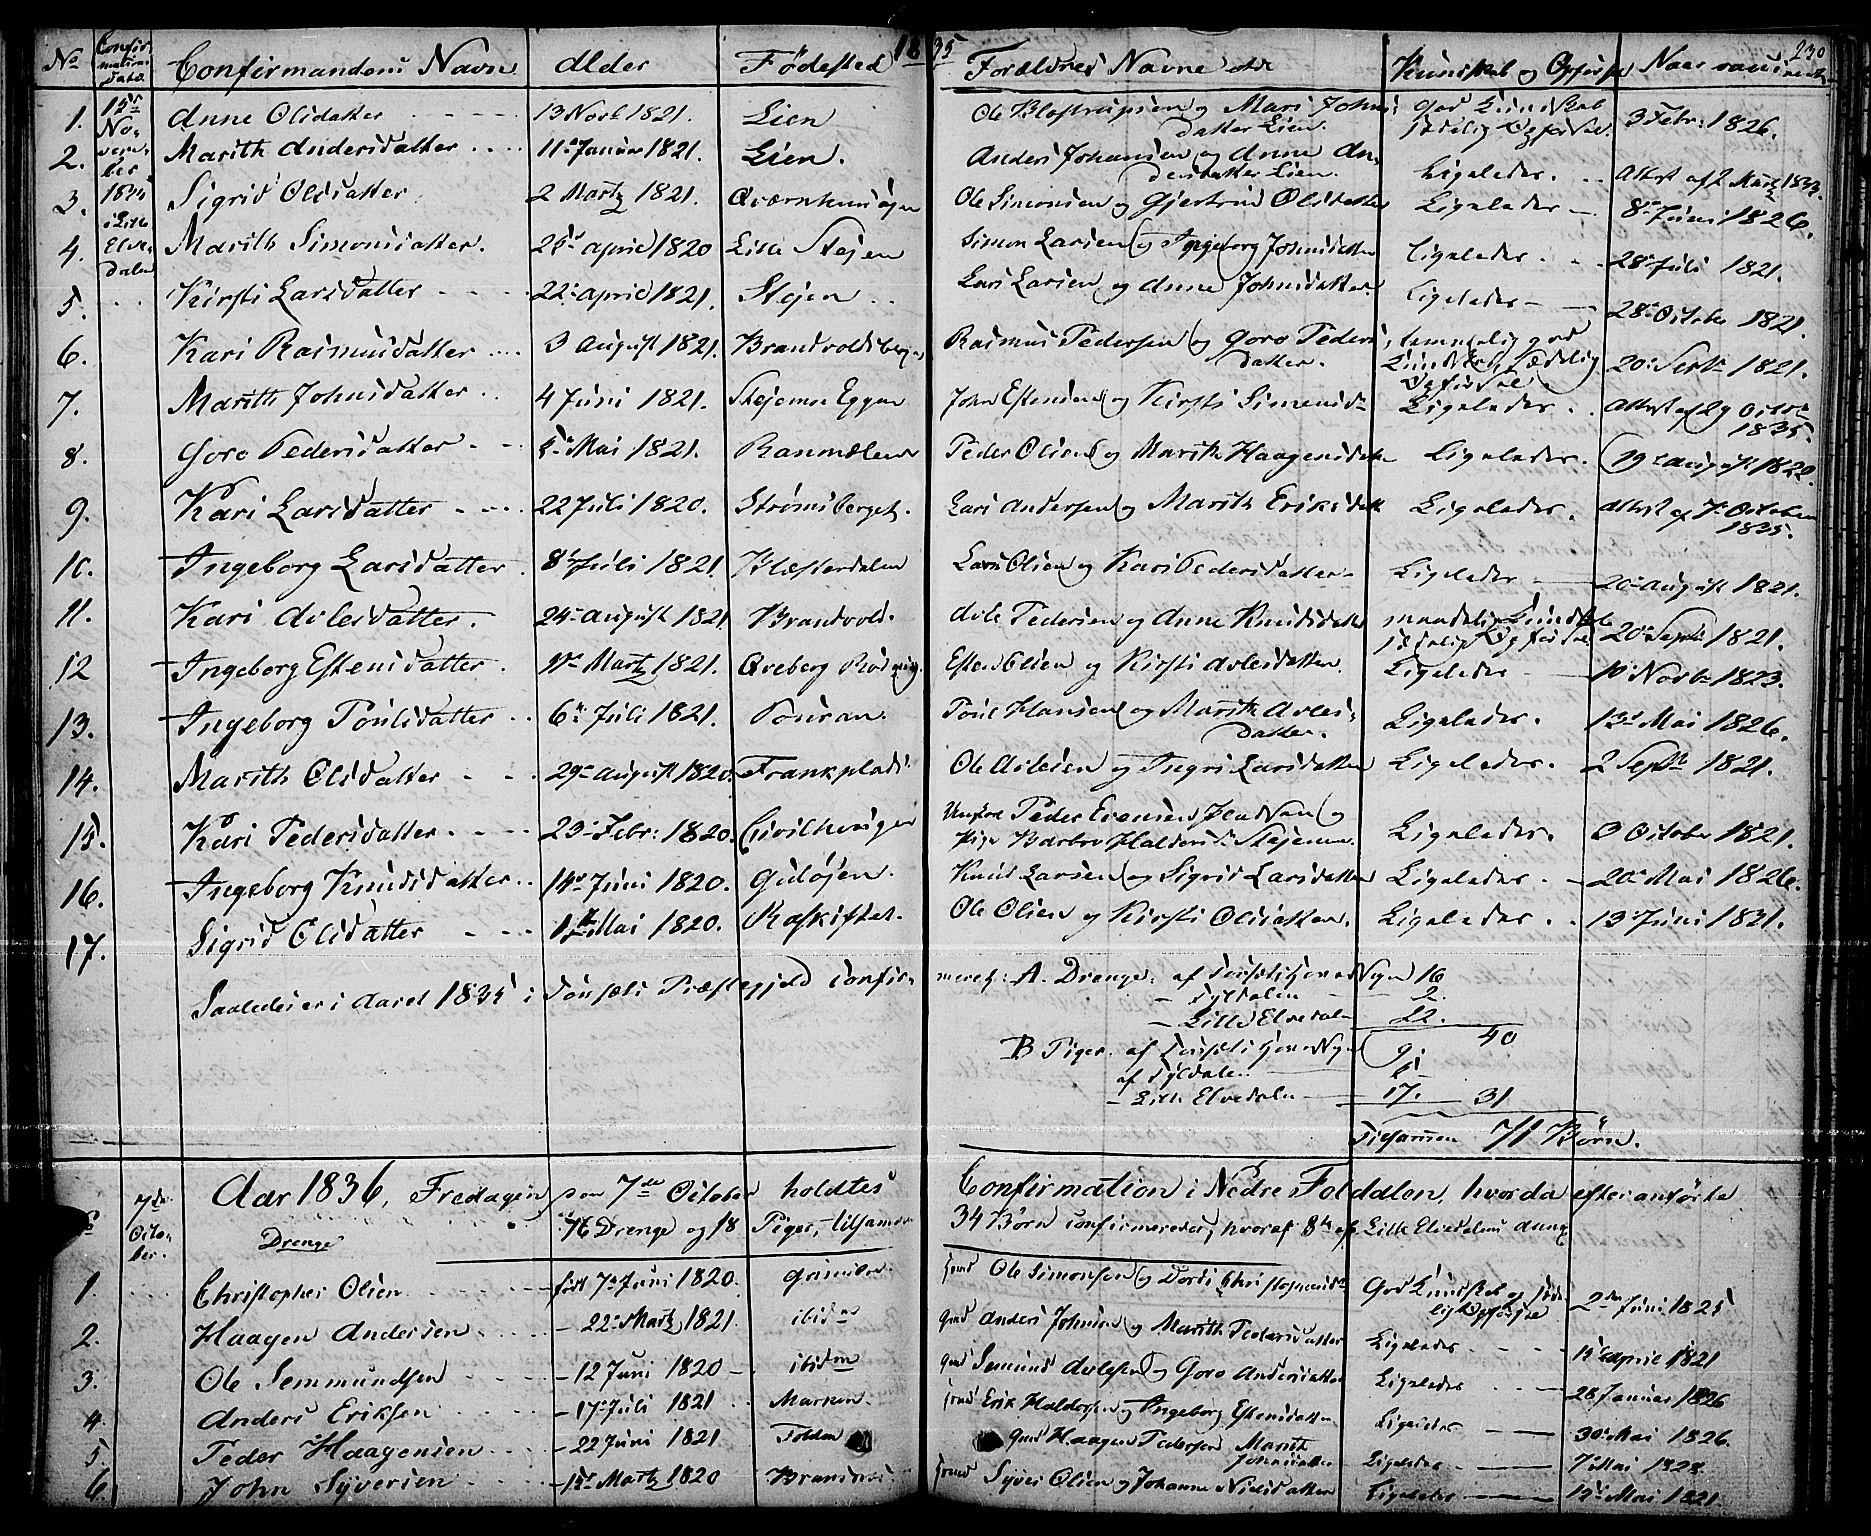 1835
230
No Confirmations Datoe Confirmandens Navn Alder Fødested Forældres Navne etc Kundskab og Opførsel Naar vaccineret
1. 15de November 1835 i Lille Elvedalen Anne Olsdatter 13 Novb 1821. Lien Ole Eng Mari Johnsdatter Lien. god Kundskab sædelig Opførsel. 3 Febr: 1826.
2. Marith Andersdatter 11te Januar 1821. Lien. Anders Johansen og Anne Andersdatter Lien. Ligeledes. Attest af 2 Martz 1833.
3. Sigrid Olsdatter 2 Martz 1821. Ole Simonsen og Gjertrud Olsdatter Ligeledes 8de Juni 1826.
4. Marith Simonsdatter. 25de April 1820 Lille Stejen Simon Larsen og Ingeborg Johnsdatter Ligeledes 28de Juli 1821.
5. Kirsti Larsdatter 22de April 1821. Stejen Lars Larsen og Anne Johnsdatter. Ligeledes 28de October 1821.
6. Kari Rasmusdatter 3 August 1821. Rasmus Pedersen og Goro Pedersdatter. temmelig god Kundskab, sædelig Opførsel 20de Septb 1821.
7. Marith Johnsdatter 4 Juni 1821. Stejemo Eggen John Estensen og Kirsti Simensd Ligeledes. Attest af 29 Octbr 1835.
8. Goro Pedersdatter 5te Mai 1821. Peder Olsen og Marith Haagensdatter Ligeledes. 19de August 1822.
9. Kari Larsdatter 22 Juli 1820. Strømsberget. Lars Andersen og Marith Eriksdatt Ligeledes. Attest af 7de October 1835.
10. Ingeborg Larsdatter. 8de Juli 1821. Lars Olsen og Kari Pedersdatter Ligeledes 20de August 1821.
11. Kari Avlesdatter. 24de August 1821 Brandvold. Avle Pedersen og Anne Knudsdatter maadelig Kundskab sædelig Opførsel 20de Septb 1821.
12 Ingeborg Estensdatter. Martz 1821. Esten Olsen og Kirsti Avlesdatter. Ligeledes 10de Novbr 1823.
13. Ingeborg Poulsdatter 6te Juli 1821. Poul Hansen og Marith Avlesdatter. Ligeledes. 13de Mai 1826.
14. Marith Olsdatter 29de August 1820. Frankplads Ole Avlesen og Ingri Larsdatter Ligeledes. 2 Septb 1821.
15. Kari Pedersdatter 23de Febr: 1820. Peder Evensen og Pige Barbro Haldorsd Stejemo. Ligeledes. October 1821.
16. Ingeborg Knudsdatter 14de Juni 1820. Knud Larsen og Sigrid Larsdatter Ligeledes. 20de Mai 1826.
17. Sigrid Olsdatter Mai 1820. Ole Olsen og Kirsti Olsdatter. Ligeledes. 13de Juni 1831.
Saaledes er i Aaret 1835 i Tønsets Præstegjeld confirmeret: A. Drenge: af Tønsets Hoved Sogn 16
Tyldalen 2.
Lille Elvedalen 22.
40
B Piger. af Tønsets Hoved Sogn 9.
af Tyldalen 5
Lille Elvedalen 17. 31
Tilsammen 71 Børn.
Aar 1836, Fredagen den 7de October holdtes Confirmation i Nedre Folddalen, hvorda efteranførte
No 7de October Drenge 16 Drenge og 18 Piger, tilsammen 34 Børn confirmeredes, hvoraf 8te af Lille Elvedalens Annex
1. Christopher Olsen født 7de Juni 1820. Ole Simonsen og Dordi God Kundskab og sædelig Opførsel 2den Juni 1825
2. Haagen Andersen 22de Martz 1821. ibidm Anders Johnsen og Marith Pedersdatter Ligeledes April 1821
3. Ole Semmundsen 12 Juni 1820 ibidm Semund Avlesen og Goro Andersdatter Ligeledes 28 Januar 1826
4. Anders Eriksen 17de Juli 1821 Erik Haldorsen og Ingeborg Estensdatter Ligeledes 30de Mai 1826.
5. Peder Haagensen 22 Juni 1821 Folden Haagen Pedersen Marith Johnsdatter Ligeledes 7 Mai 1828.
6. John Syversen Martz 1820 Syver Olsen og Johanne Nielsdatter Ligeledes Mai 1821